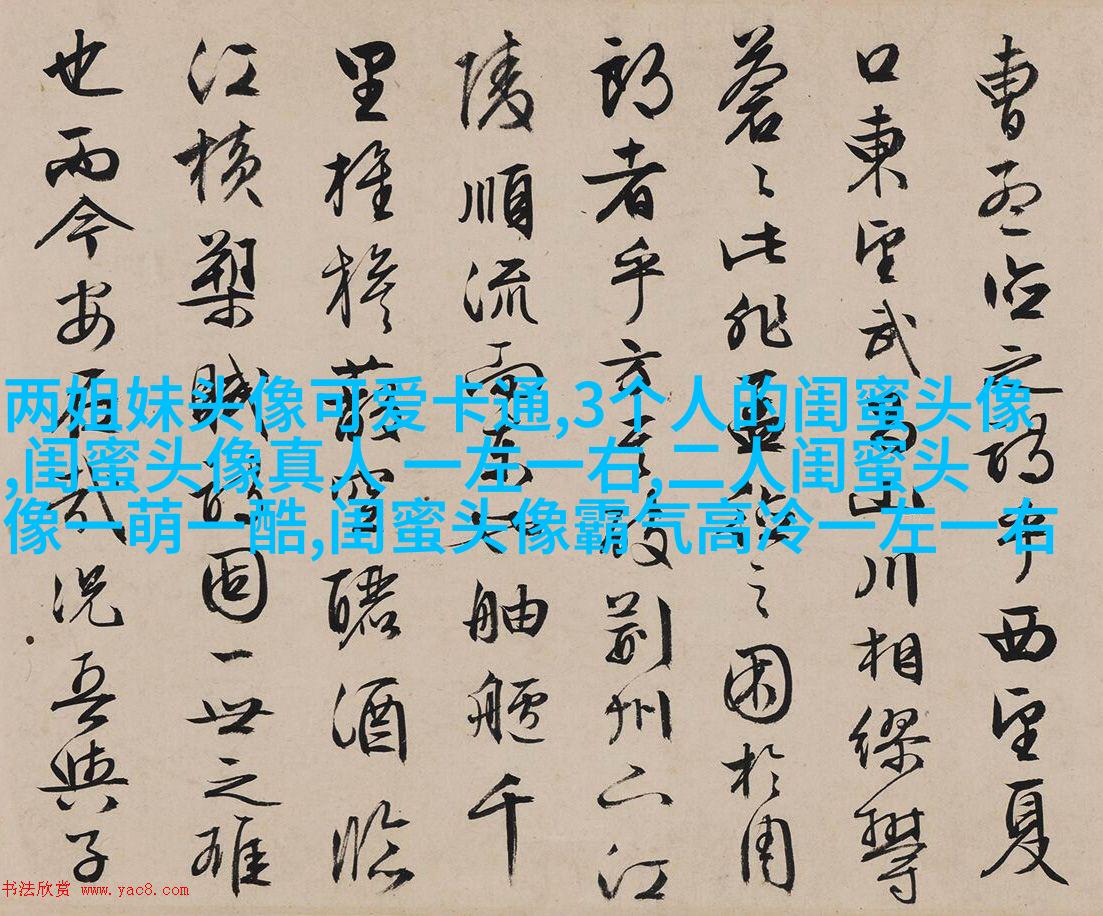 曹孟德之詩乎西望夏
口東望武昌山川相繆欝
蒼々此非孟德之困於周
郎者乎方其破荊州下江
陵順流而東也舳艫千
里旌旗蔽空釃酒臨
江橫槊賦詩固一世之雄
也而今安在哉況吾與子
两姐妹头像可爱卡通,3个人的闺蜜头像
,闺蜜头像真人 一左一右,二人闺蜜头
像一萌一酷,闺蜜头像霸气高冷一左一右
书法欣赏 www.yac8.com